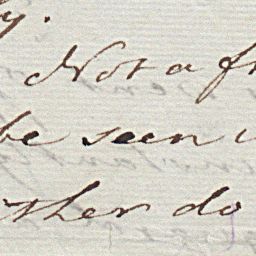 y.
Not a fr
be seen
ther do